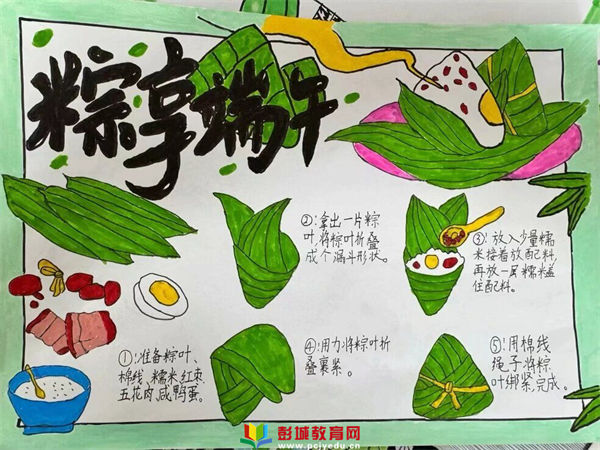 粽享端午
②:拿出一片粽
叶,将粽叶折叠
成个漏斗形状。
③:放入少量糯
米接着放配料,
再放一层糯米盖
住配料。
①:准备粽叶、
棉线、糯米、红枣、
五花肉、咸鸭蛋。
④:用力将粽叶折
叠裹紧。
⑤:用棉线
绳子,将粽
叶绑紧,完成。
彭城教育网
www.pcjyedu.cn